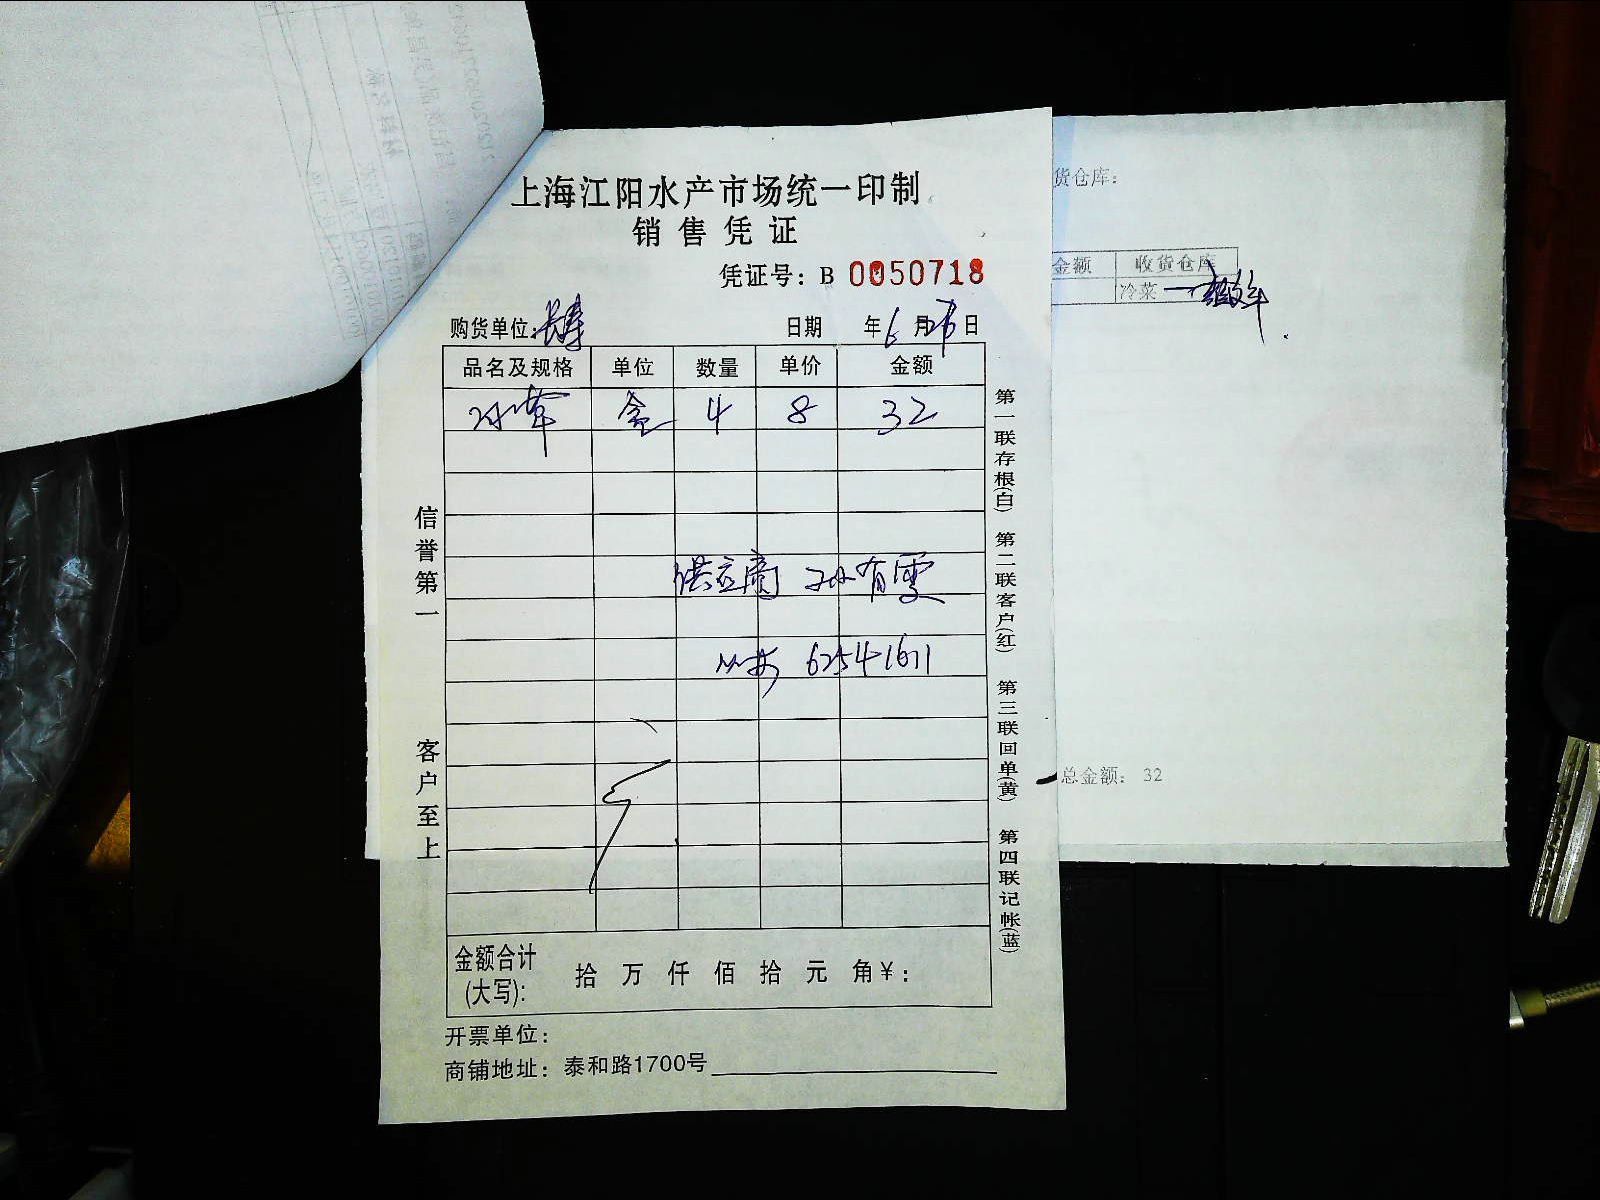 上海江阳水产市场统一印制
销售凭证
凭证号：B 0050718
购货单位：长寿 日期 年6月26日
品名及规格 单位 数量 单价 金额
冰草 盒 4 8 32
供应商 孙有雯
62541611
信誉第一
客户至上
第一联存根(白) 第二联客户(红) 第三联回单(黄) 第四联记帐(蓝)
金额合计(大写)： 拾 万 仟 佰 拾 元 角 ¥：
开票单位：
商铺地址：泰和路1700号
货仓库：
金额 收货仓库
冷菜
总金额： 32